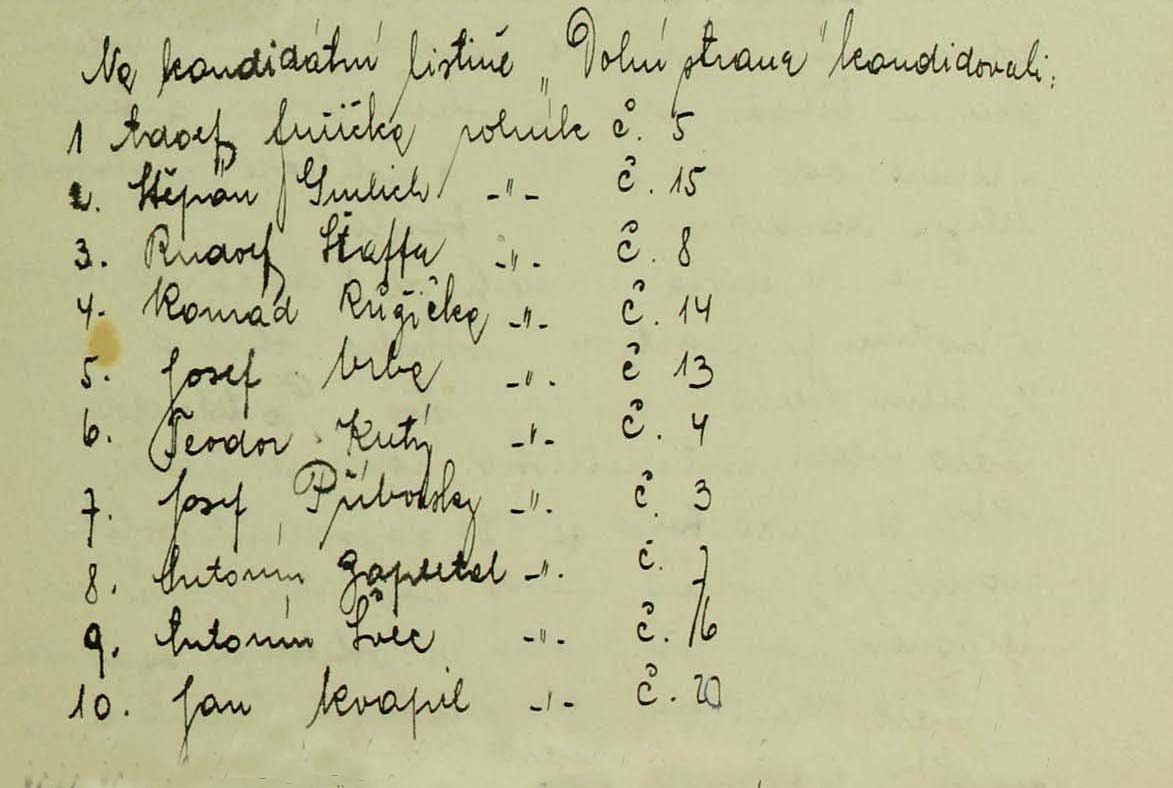 Na kandidátní listině „Dolní strana" kandidovali:
1 Adolf rolník č. 5
2. Štěpán -"- č. 15
3. Rudolf Štaffa -"- č. 8
4. Konrád Růžička -"- č. 14
5. Josef Vrba -"- č 13
6. Teodor Krutý -"- č. 4
7. Josef Příborský -"- č. 3
8. Antonín Zapletal -"- č. 7
9. Antonín Švec -"- č. 16
10. Jan Kvapil -"- č. 20